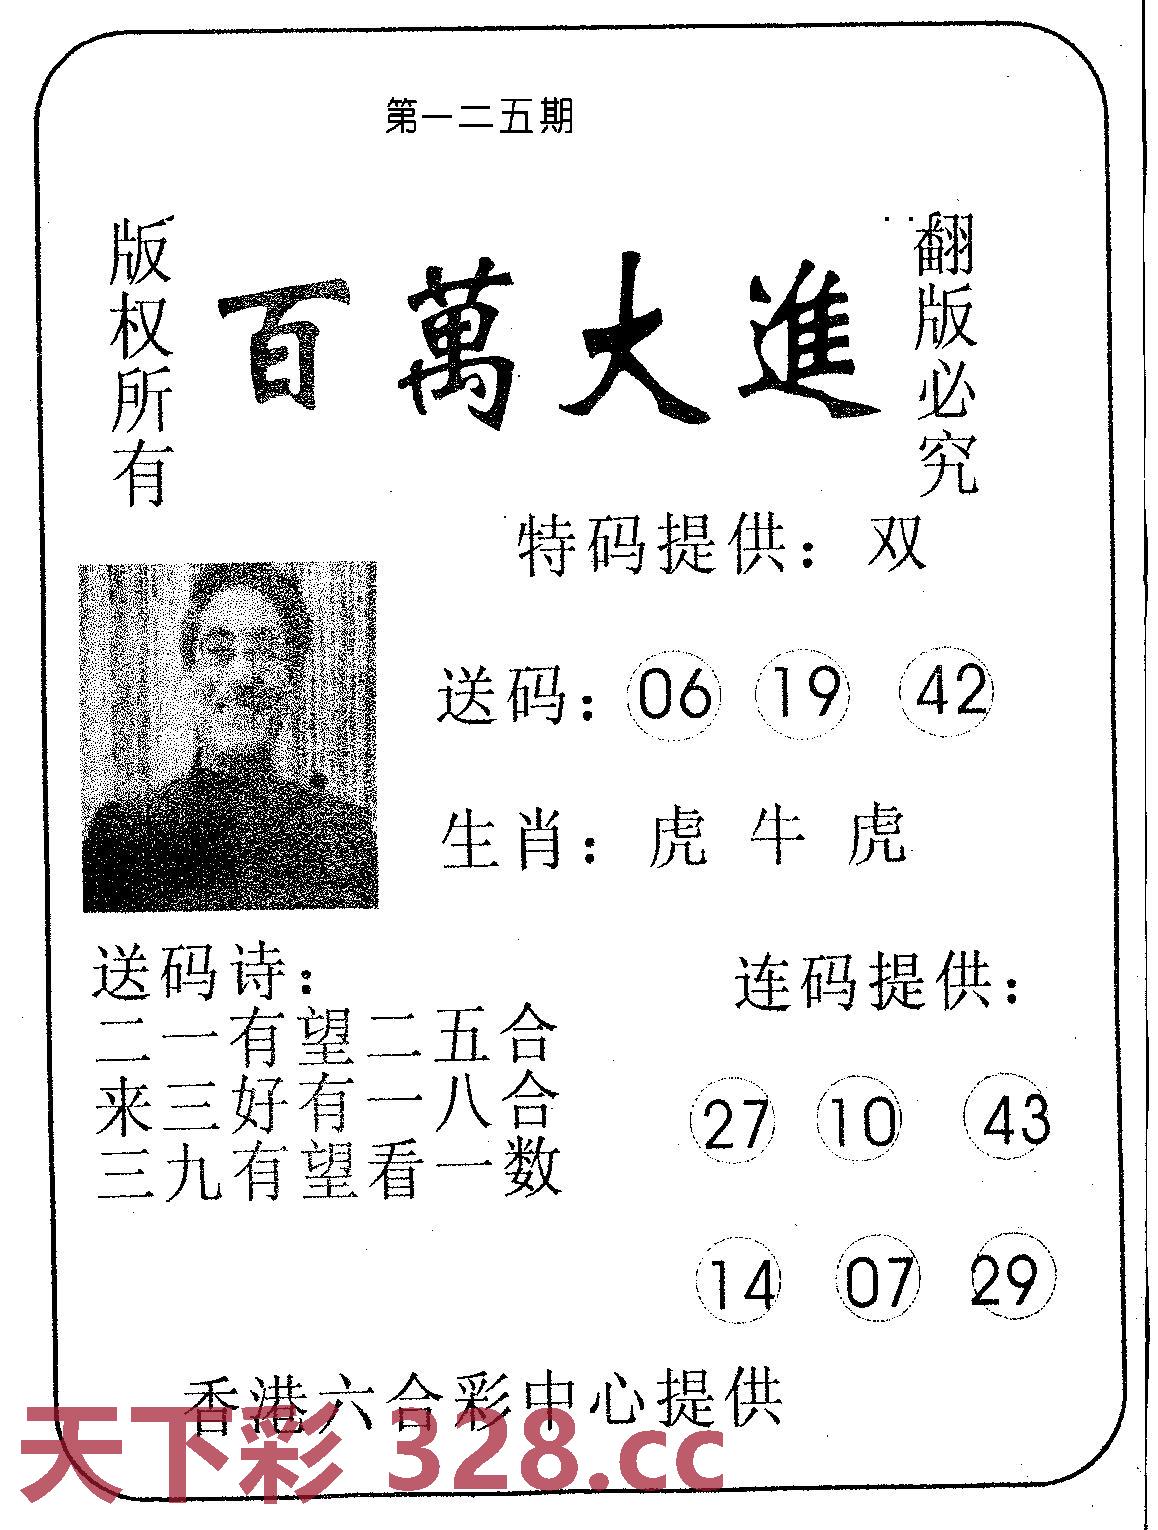 第一二五期
版权所有
百萬大進
翻版必究
特码提供：双
送码：06 19 42
生肖：虎 牛 虎
送码诗：
二一有望二五合
来三好有一八合
三九有望看一数
连码提供：
27 10 43
14 07 29
香港六合彩中心提供
天下彩 328.cc